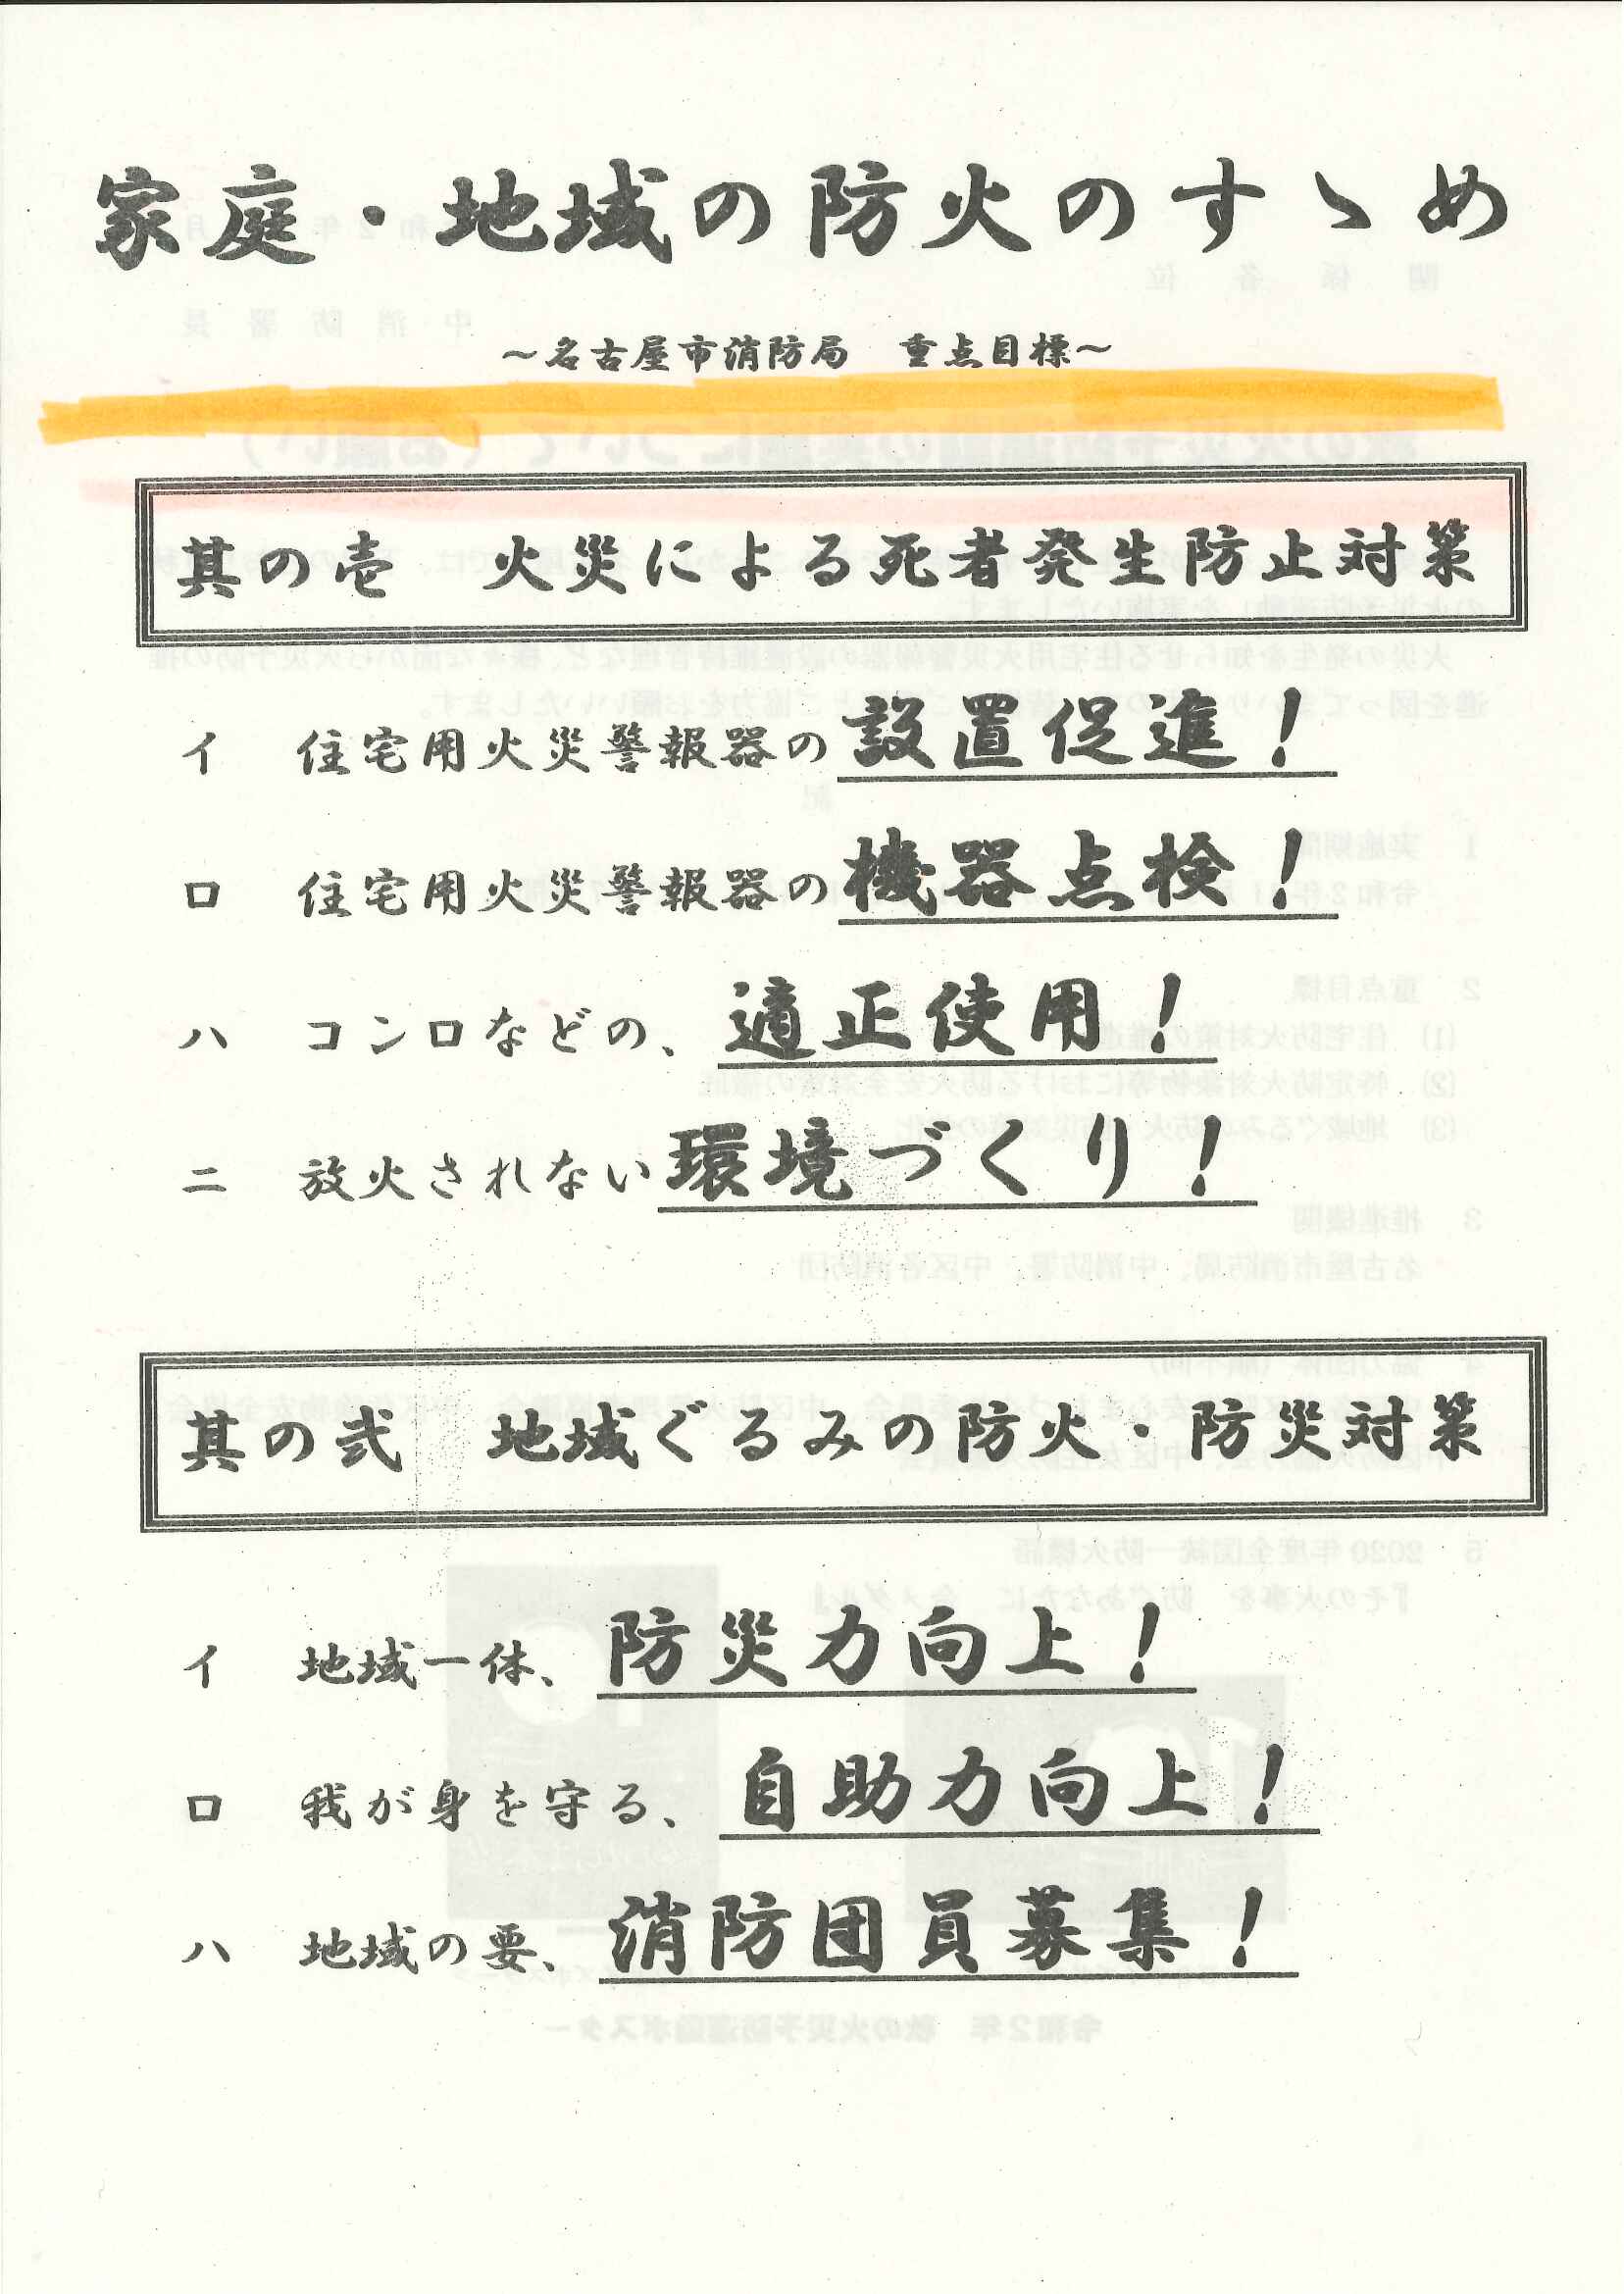 家庭・地域の防火のすゝめ
～名古屋市消防局　重点目標～
其の壱　火災による死者発生防止対策
イ　住宅用火災警報器の設置促進！
ロ　住宅用火災警報器の機器点検！
ハ　コンロなどの、適正使用！
ニ　放火されない環境づくり！
其の弐　地域ぐるみの防火・防災対策
イ　地域一体、防災力向上！
ロ　我が身を守る、自助力向上！
ハ　地域の要、消防団員募集！